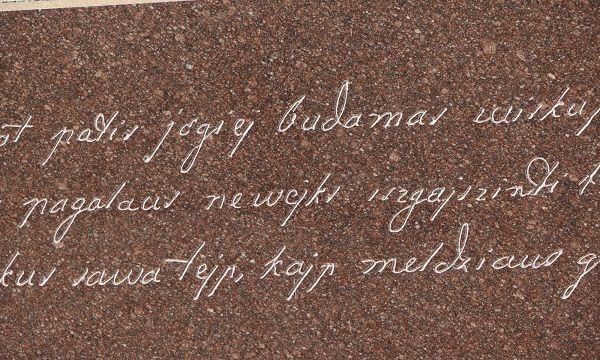 ot patis jogiej budamas wiskuj
pagalaus newejks iszgajszinti
kus sawa tejp, kajp meldziaus g